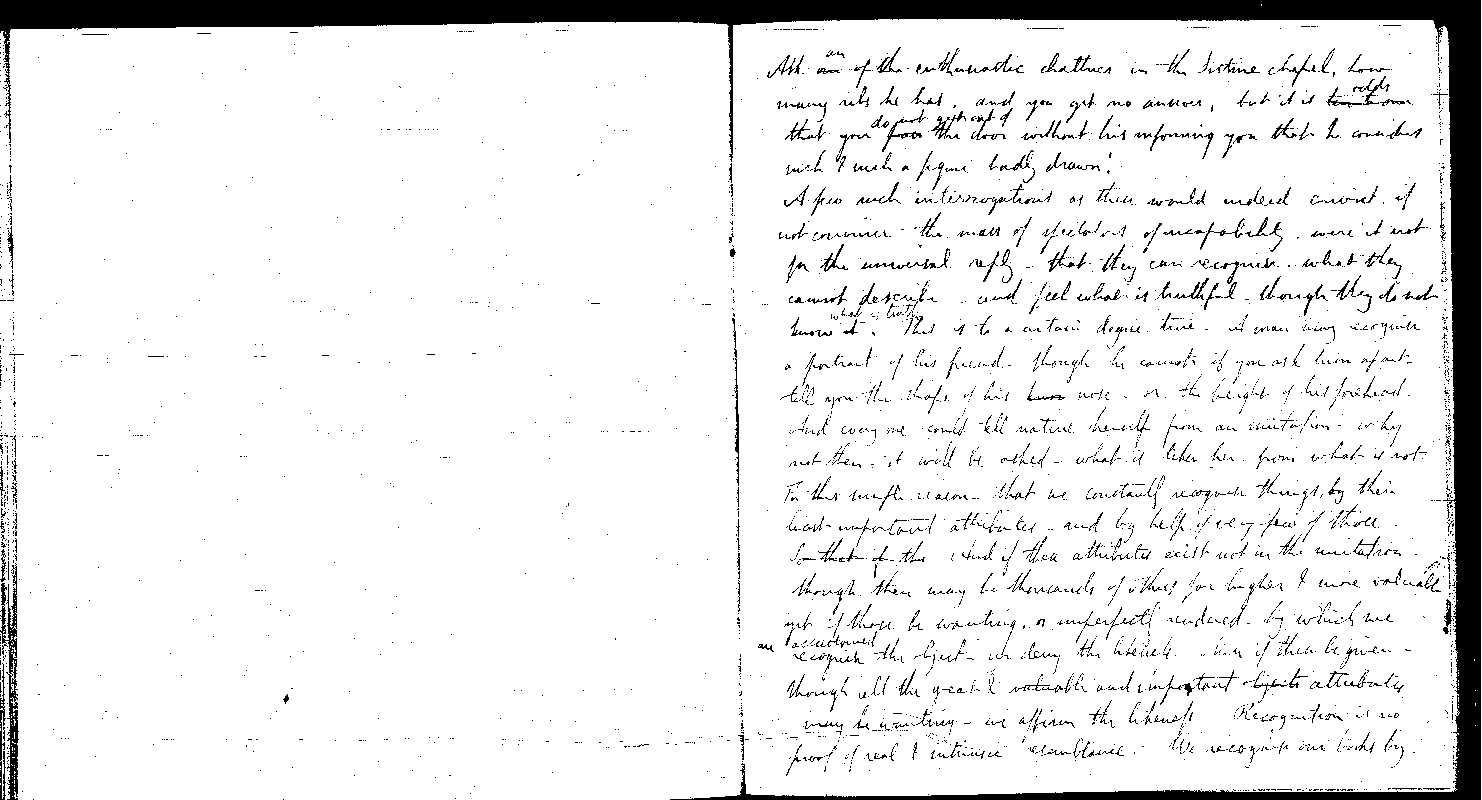 Ask an of the enthusiastic chatterers in the Sistine chapel, how
many ribs he has, and you get no answer, but it is odds
that you do not get out of the door without his informing you that he considers
such & such a figure badly drawn!
A few such interrogations as these would indeed convict, if
not convince the mass of spectators of incapability, were it not
for the universal reply - that they can recognise what they
cannot describe - and feel what is truthful - though they do not
know what is truth. This is to a certain degree true - A man may recognise
a portrait of his friend - though he cannot if you ask him apart
tell you the shape of his nose - or the height of his forehead.
And every one could tell nature herself from an imitation - why
not then - it will be asked - what is like her from what is not
For this simple reason - that we constantly recognise things, by their
least important attributes - and by help of very few of those
So that if the And if these attributes exist not in the imitation -
though there may be thousands of others far higher & more valuable
yet if those be wanting, or imperfectly rendered - by which we
are accustomed recognise the object - we deny the likeness. Now if these be given -
though all the great & valuable and important objects attributes
may be wanting - we affirm the likeness Recognition is no
proof of real & intrinsic resemblance. We recognise our books by